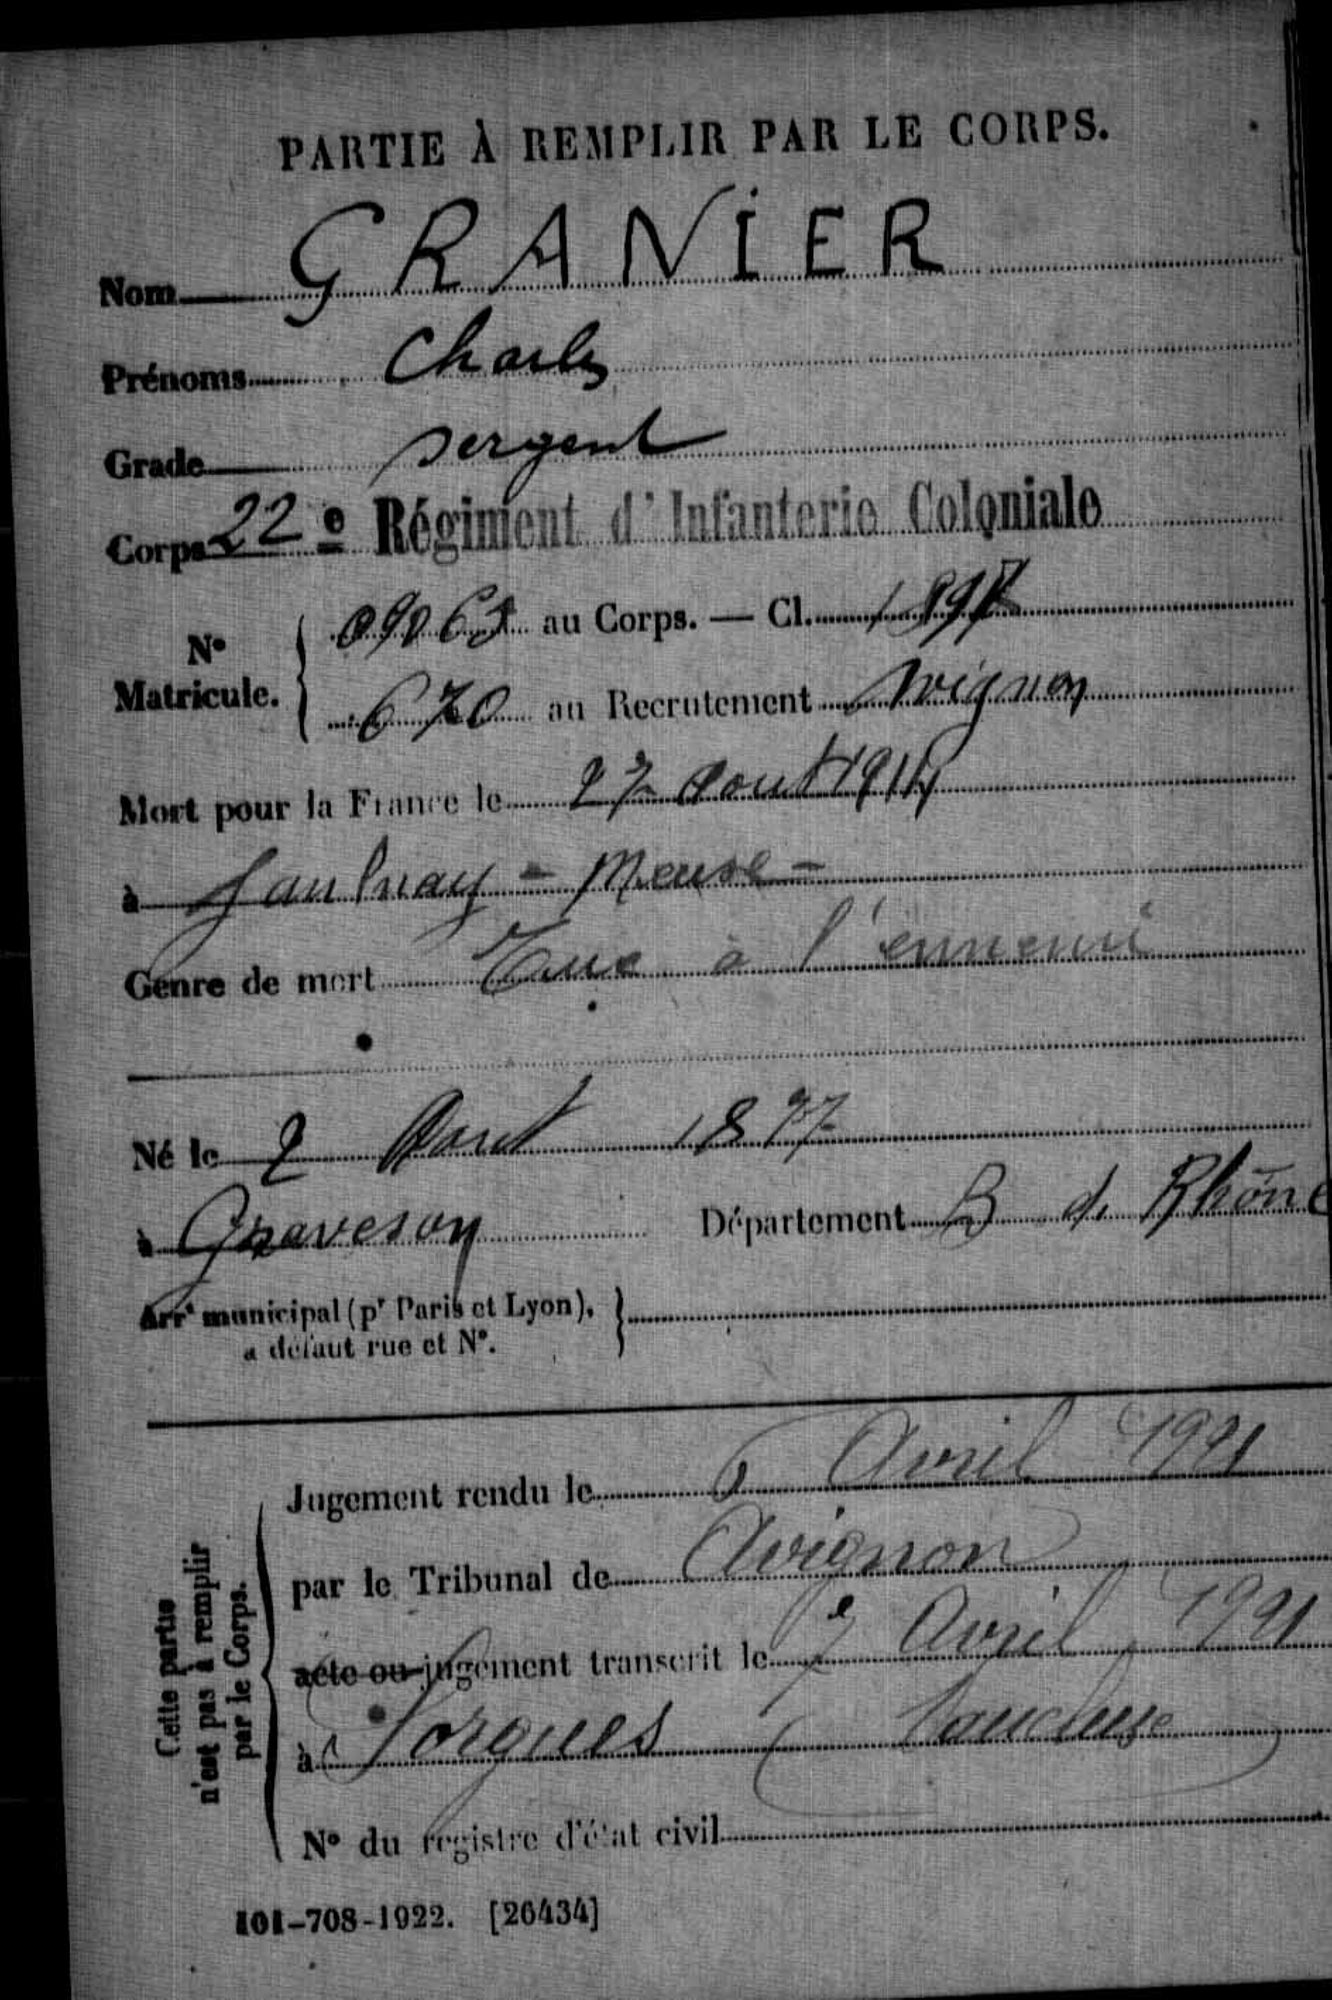 PARTIE À REMPLIR PAR LE CORPS.
Nom GRANIER
Prénoms Charles
Grade Sergent
Corps 22e Régiment d'Infanterie Coloniale
N° Matricule. 09063 au Corps. — Cl. 1897
670 au Recrutement Avignon
Mort pour la France le 27 Aout 1914
à Jaulnay - Meuse -
Genre de mort Tué à l'ennemi
Né le 2 Aout 1877
à Graveson Département B d. Rhône
Arrt municipal (pr Paris et Lyon),
à défaut rue et N°.
Jugement rendu le 6 Avril 1921
par le Tribunal de Avignon
acte ou jugement transcrit le 7 Avril 1921
à Sorgues (Vaucluse)
N° du registre d'état civil
Cette partie
n'est pas à remplir
par le Corps.
101-708-1922. [26434]